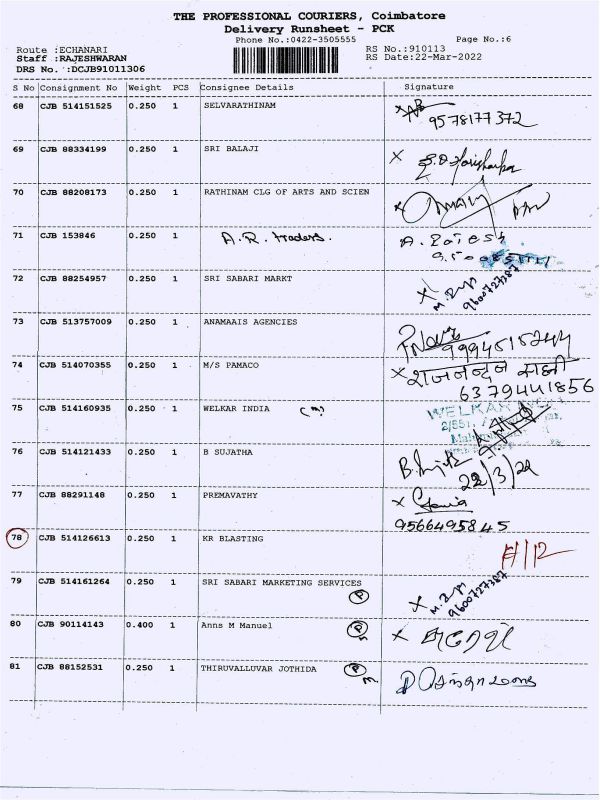 THE PROFESSIONAL COURIERS, Coimbatore
Delivery Runsheet - PCK
Phone No.:0422-3505555 Page No.:6
Route :ECHANARI RS No.:910113
Staff :RAJESHWARAN RS Date:22-Mar-2022
DRS No. :DCJB91011306
S No Consignment No Weight PCS Consignee Details Signature
68 CJB 514151525 0.250 1 SELVARATHINAM
9578177372
69 CJB 88334199 0.250 1 SRI BALAJI
70 CJB 88208173 0.250 1 RATHINAM CLG OF ARTS AND SCIEN
71 CJB 153846 0.250 1 A.R. traders.
72 CJB 88254957 0.250 1 SRI SABARI MARKT
9600727387
73 CJB 513757009 0.250 1 ANAMAAIS AGENCIES
74 CJB 514070355 0.250 1 M/S PAMACO
6379441856
75 CJB 514160935 0.250 1 WELKAR INDIA (m)
WELKAR
76 CJB 514121433 0.250 1 B SUJATHA
22/3/22
77 CJB 88291148 0.250 1 PREMAVATHY
9566495845
78 CJB 514126613 0.250 1 KR BLASTING
79 CJB 514161264 0.250 1 SRI SABARI MARKETING SERVICES
P 9600727387
80 CJB 90114143 0.400 1 Anns M Manuel P
81 CJB 88152531 0.250 1 THIRUVALLUVAR JOTHIDA P
m